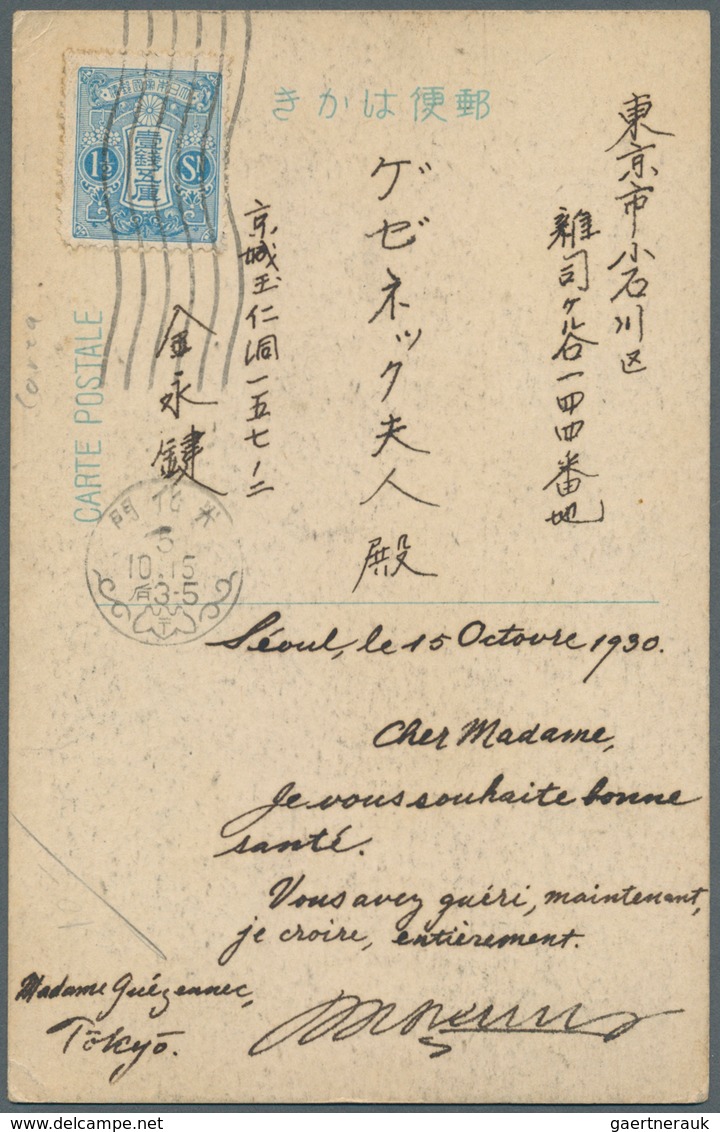 きかは便郵
東京市小石川区
雑司ケ谷一四四番地
ゲゼネック夫人殿
京城玉仁洞一五七ノ二
金永鍵
大日本帝國郵便
壹錢五厘
1½ Sⁿ
CARTE POSTALE
Corea
光化門
5
10.15
后3-5
〒
Séoul, le 15 Octovre 1930.
Cher Madame,
Je vous souhaite bonne
santé.
Vous avez guéri, maintenant,
je croire, entièrement.
Madame Guézennec,
Tōkyō.
gaertnerauk